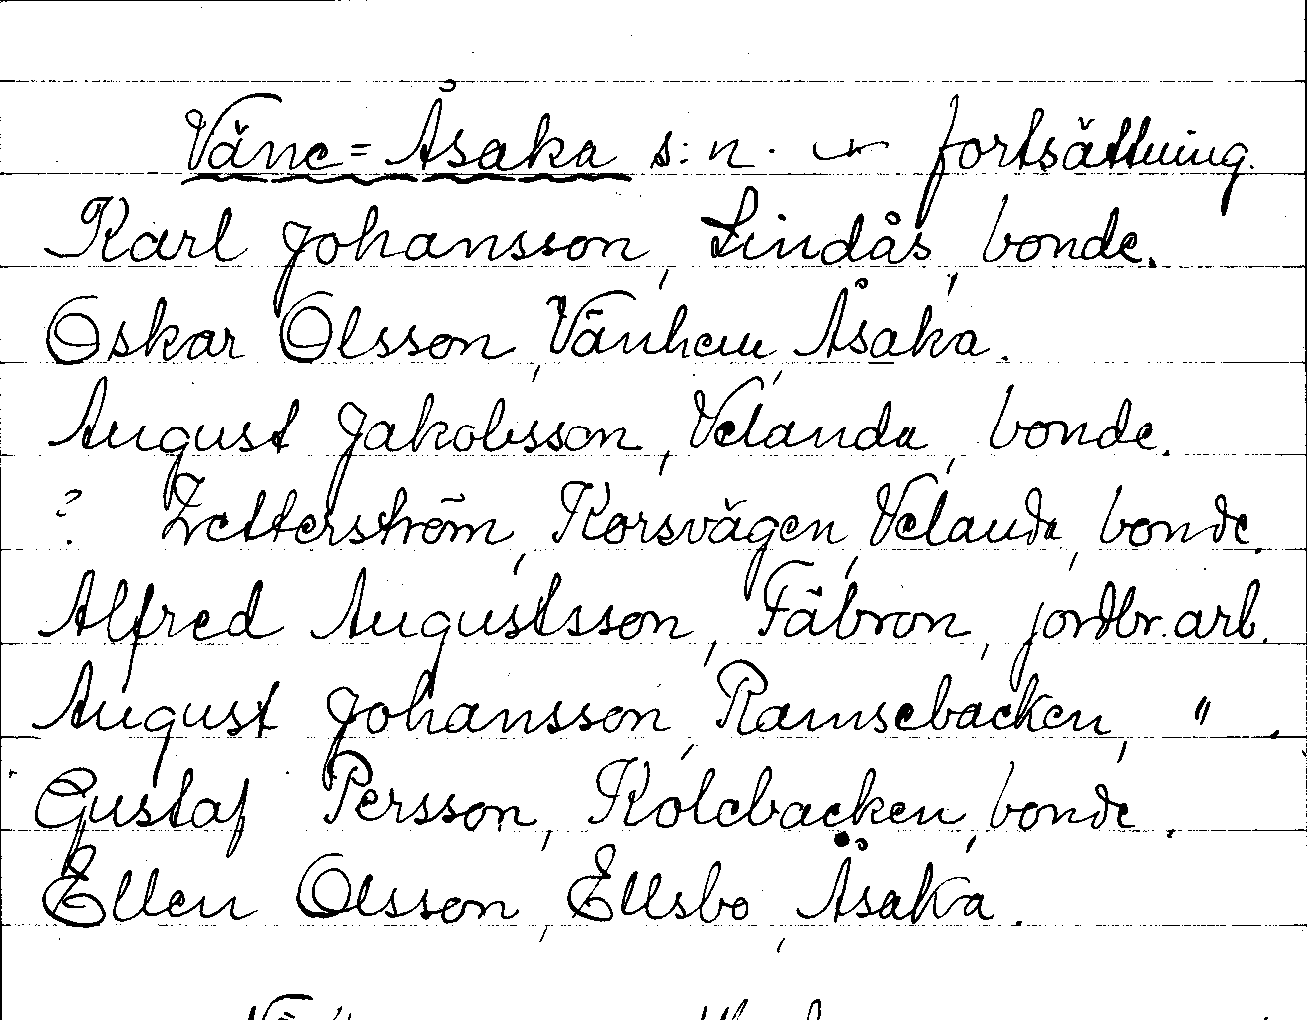 Väne=Åsaka s:n. — fortsättning.
Karl Johansson, Lindås, bonde.
Oskar Olsson, Vänhem, Åsaka.
August Jakobsson, Velanda, bonde.
? Zetterström, Korsvägen, Velanda, bonde.
Alfred Augustsson, Fäbron, jordbr.arb.
August Johansson, Ramsebacken, " .
Gustaf Persson, Kolebacken, bonde.
Ellen Olsson, Ellsbo, Åsaka.